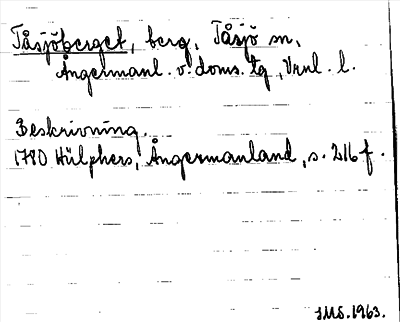 Tåsjöberget, berg, Tåsjö sn,
Ångermanl. v. doms. tg, Vrnl. l.
Beskrivning.
1780 Hülphers, Ångermanland, s. 216 f.
IMS. 1963.